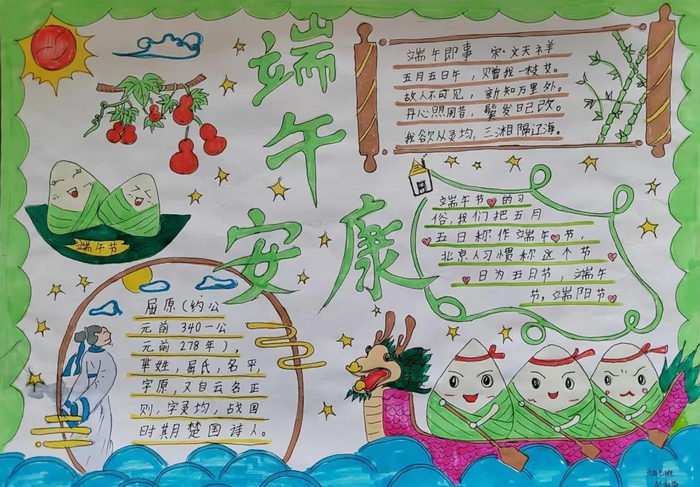 端午安康
端午即事 宋·文天祥
五月五日午，赠我一枝艾。
故人不可见，新知万里外。
丹心照夙昔，鬓发日已改。
我欲从灵均，三湘隔辽海。
端午节的习
俗，我们把五月
五日称作端午节，
北京人习惯称这个节
日为五月节，端午
节，端阳节
端午节
屈原（约公
元前340—公
元前278年），
芈姓，屈氏，名平，
字原，又自云名正
则，字灵均，战国
时期楚国诗人。